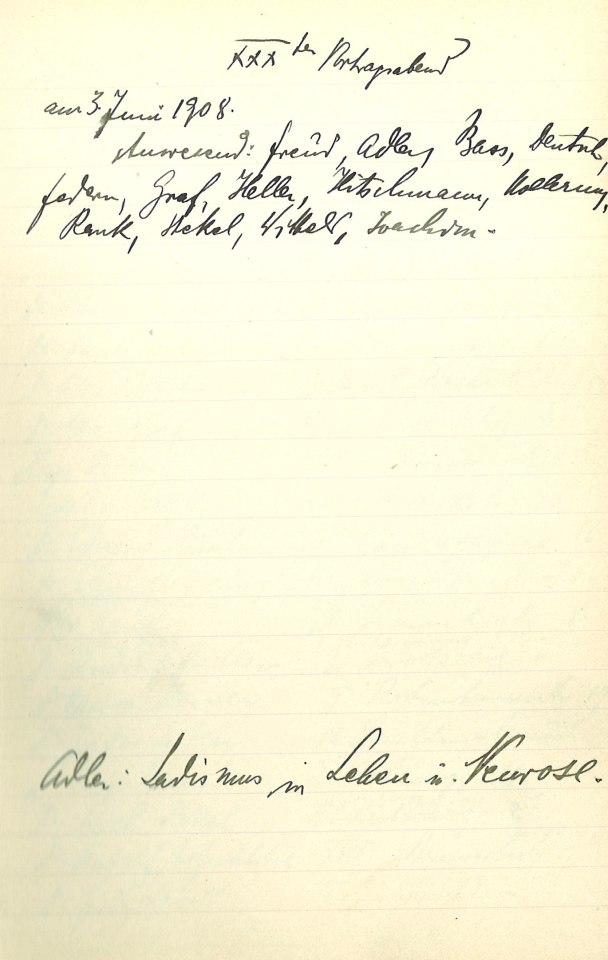 XXX ter Vortragsabend
am 3. Juni 1908.
Anwesend: Freud, Adler, Bass, Deutsch,
Federn, Graf, Heller, Hitschmann, Hollerung,
Rank, Stekel, Wittels, Joachim.
Adler: Sadismus in Leben u. Neurose.